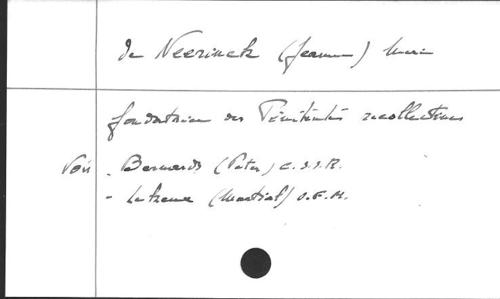 De Neerinck (Jeanne) Marie
fondatrice des Pénitentes recollectines
Voir - Bernards (Peter) C.SS.R.
- (Martial) O.F.M.